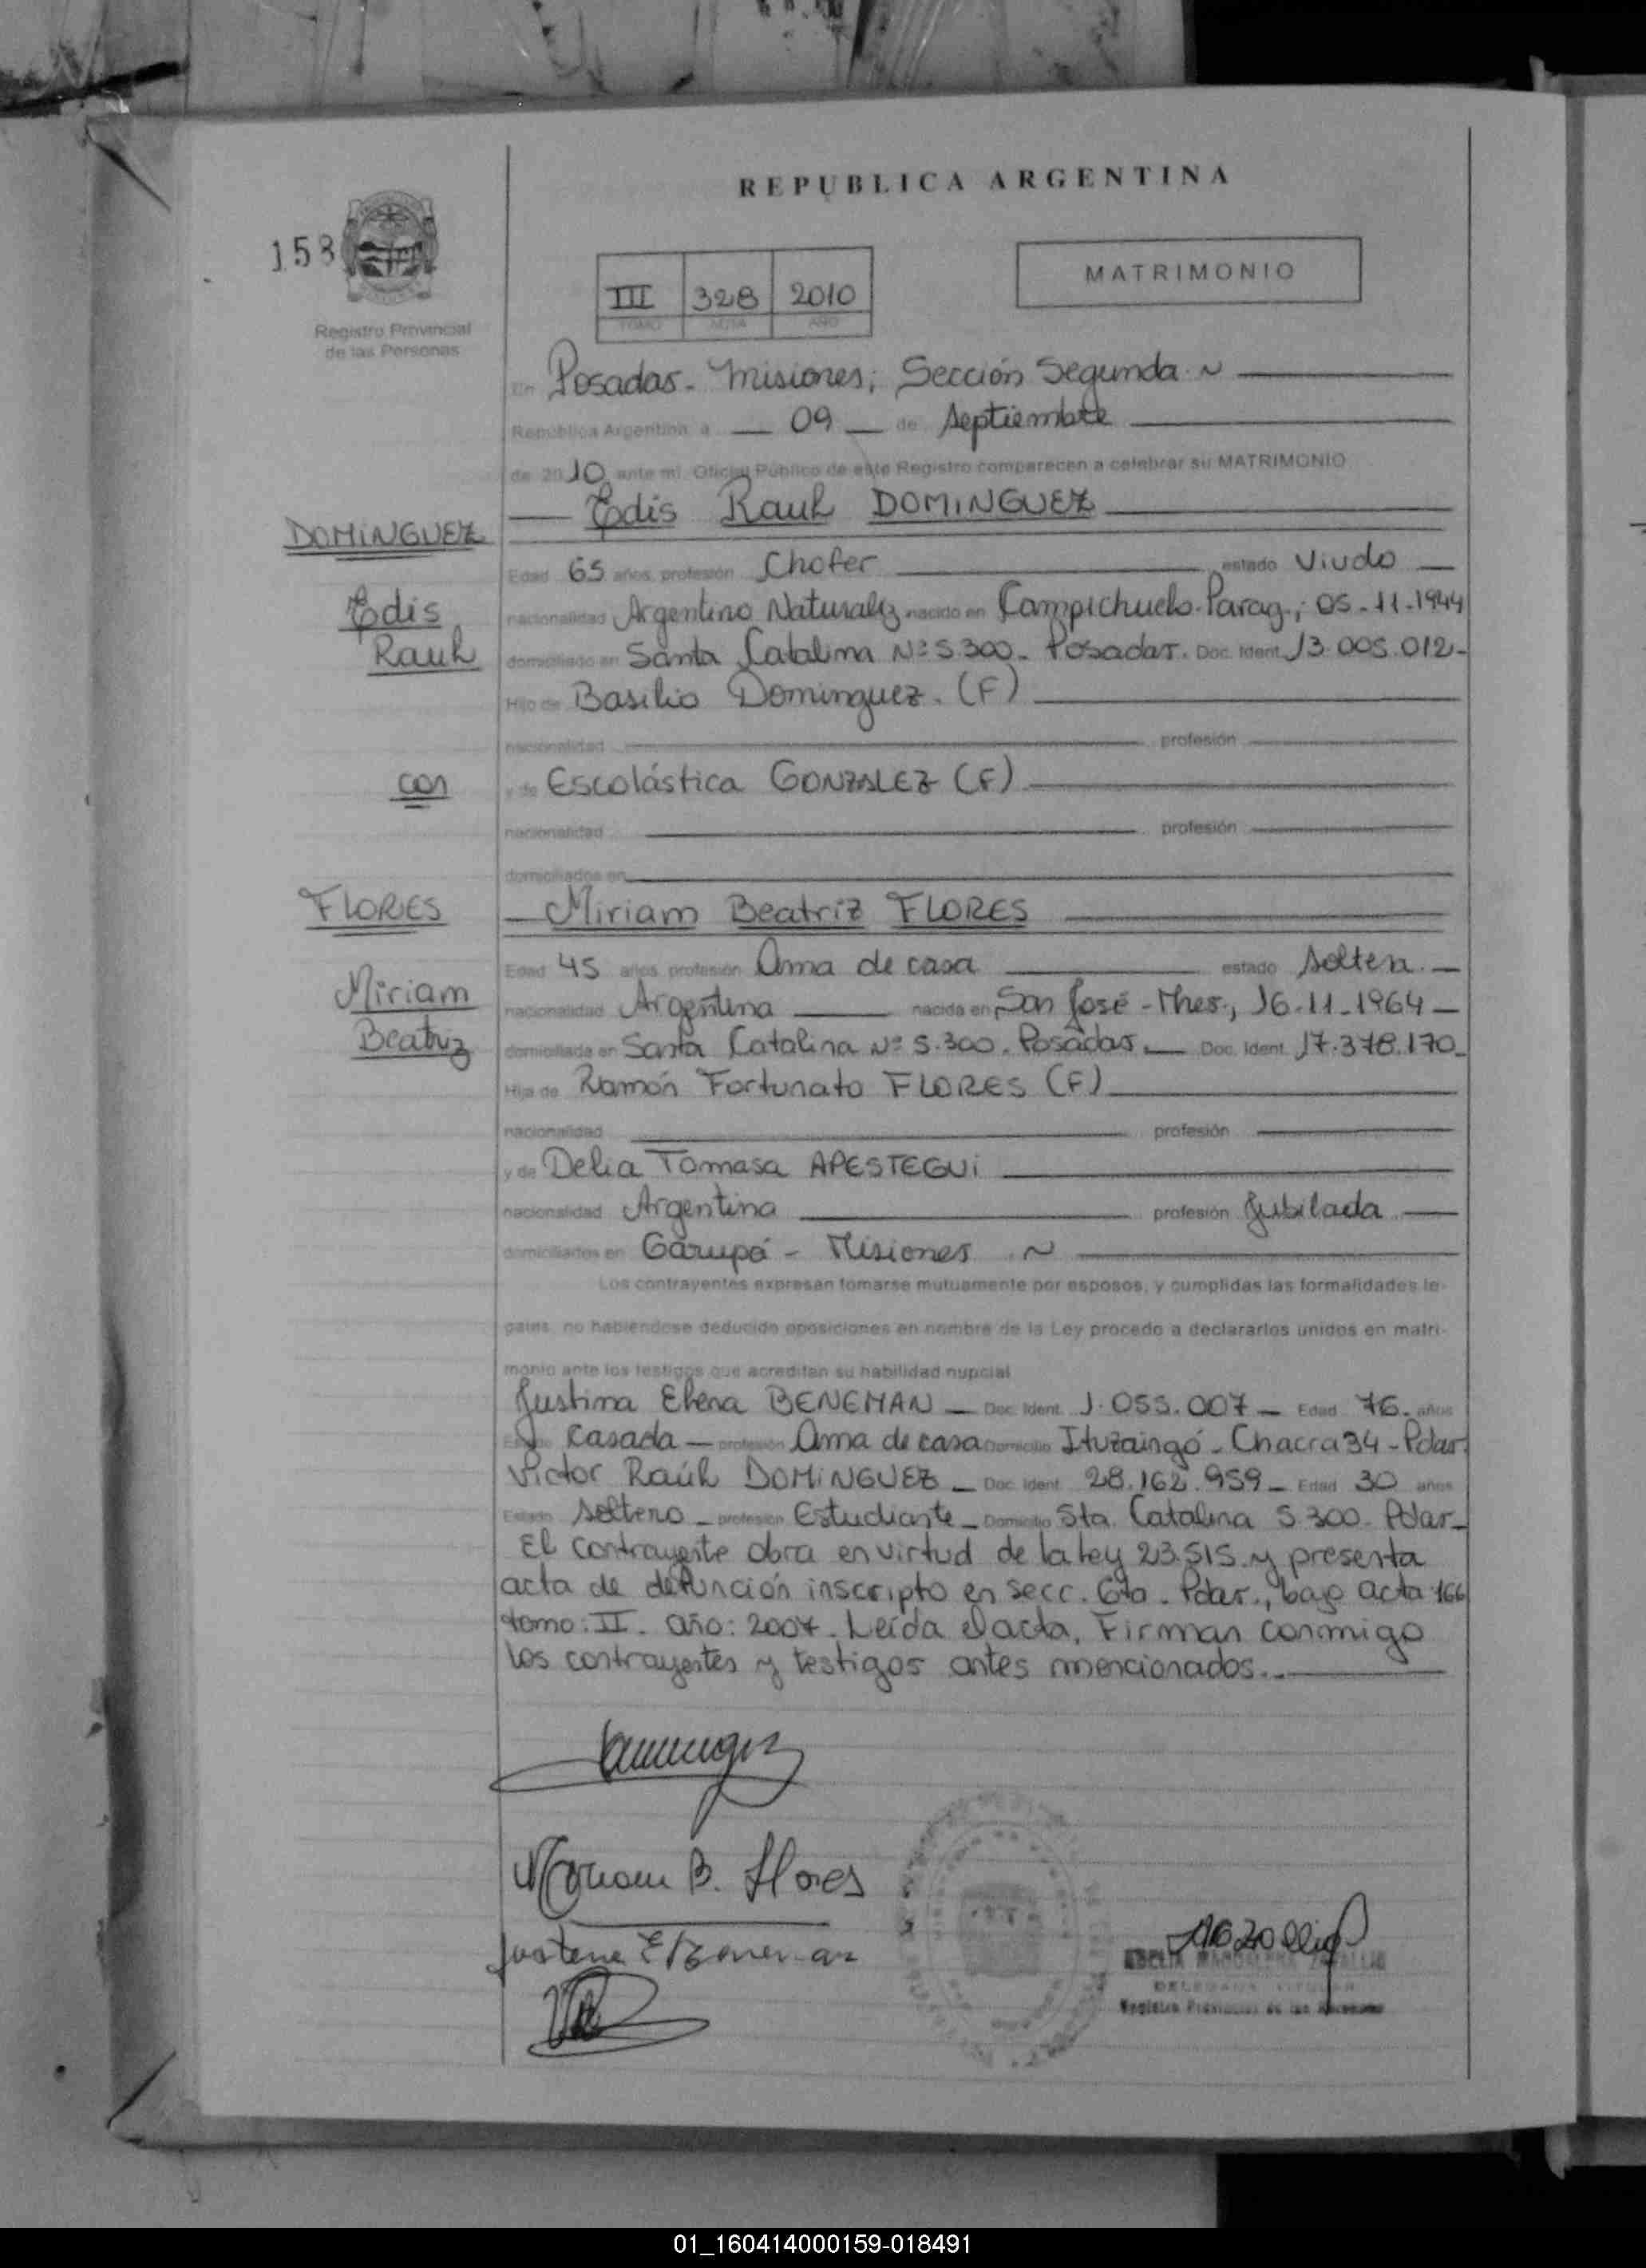 REPUBLICA ARGENTINA
158
MATRIMONIO
III 328 2010
TOMO ACTA AÑO
Registro Provincial
de las Personas
En Posadas - Misiones; Sección Segunda
República Argentina a 09 de septiembre
de 2010 ante mí, Oficial Público de este Registro comparecen a celebrar su MATRIMONIO
Edis Raul DOMINGUEZ
DOMINGUEZ
Edad 65 años, profesión Chofer estado Viudo
Edis
nacionalidad Argentino Naturaliz nacido en Campichuelo-Parag.; 05-11-1944
Raul
domiciliado en Santa Catalina Nº 5.300 - Posadas. Doc. Ident. 13.005.012-
Hijo de Basilio Dominguez. (F)
nacionalidad profesión
con
y de Escolástica GONZALEZ (F)
nacionalidad profesión
domiciliados en
FLORES
Miriam Beatriz FLORES
Edad 45 años, profesión Ama de casa estado soltera
Miriam
nacionalidad Argentina nacida en San José - Mnes., 16-11-1964
Beatriz
domiciliada en Santa Catalina Nº 5.300. Posadas. Doc. Ident. 17.378.170
Hija de Ramón Fortunato FLORES (F)
nacionalidad profesión
y de Delia Tomasa APESTEGUI
nacionalidad Argentina profesión Jubilada
domiciliados en Garupá - Misiones
Los contrayentes expresan tomarse mutuamente por esposos, y cumplidas las formalidades le-
gales, no habiéndose deducido oposiciones en nombre de la Ley procedo a declararlos unidos en matri-
monio ante los testigos que acreditan su habilidad nupcial
Justina Elena BENEMAN - Doc. Ident. 1.055.007 - Edad 76. años
Estado Casada - profesión Ama de casa Domicilio Ituzaingó - Chacra 34 - Pdas.
Victor Raúl DOMINGUEZ - Doc. Ident. 28.162.959 - Edad 30 años
Estado soltero - profesión Estudiante - Domicilio Sta. Catalina 5.300. Pdas-
El contrayente obra en virtud de la ley 23.515 y presenta
acta de defunción inscripto en secc. 6ta. Pdas., bajo acta 166
tomo: II. año: 2007. Leída el acta, Firman conmigo
los contrayentes y testigos antes mencionados.
Miriam B. Flores
Registro Provincial de las Personas
01_160414000159-018491